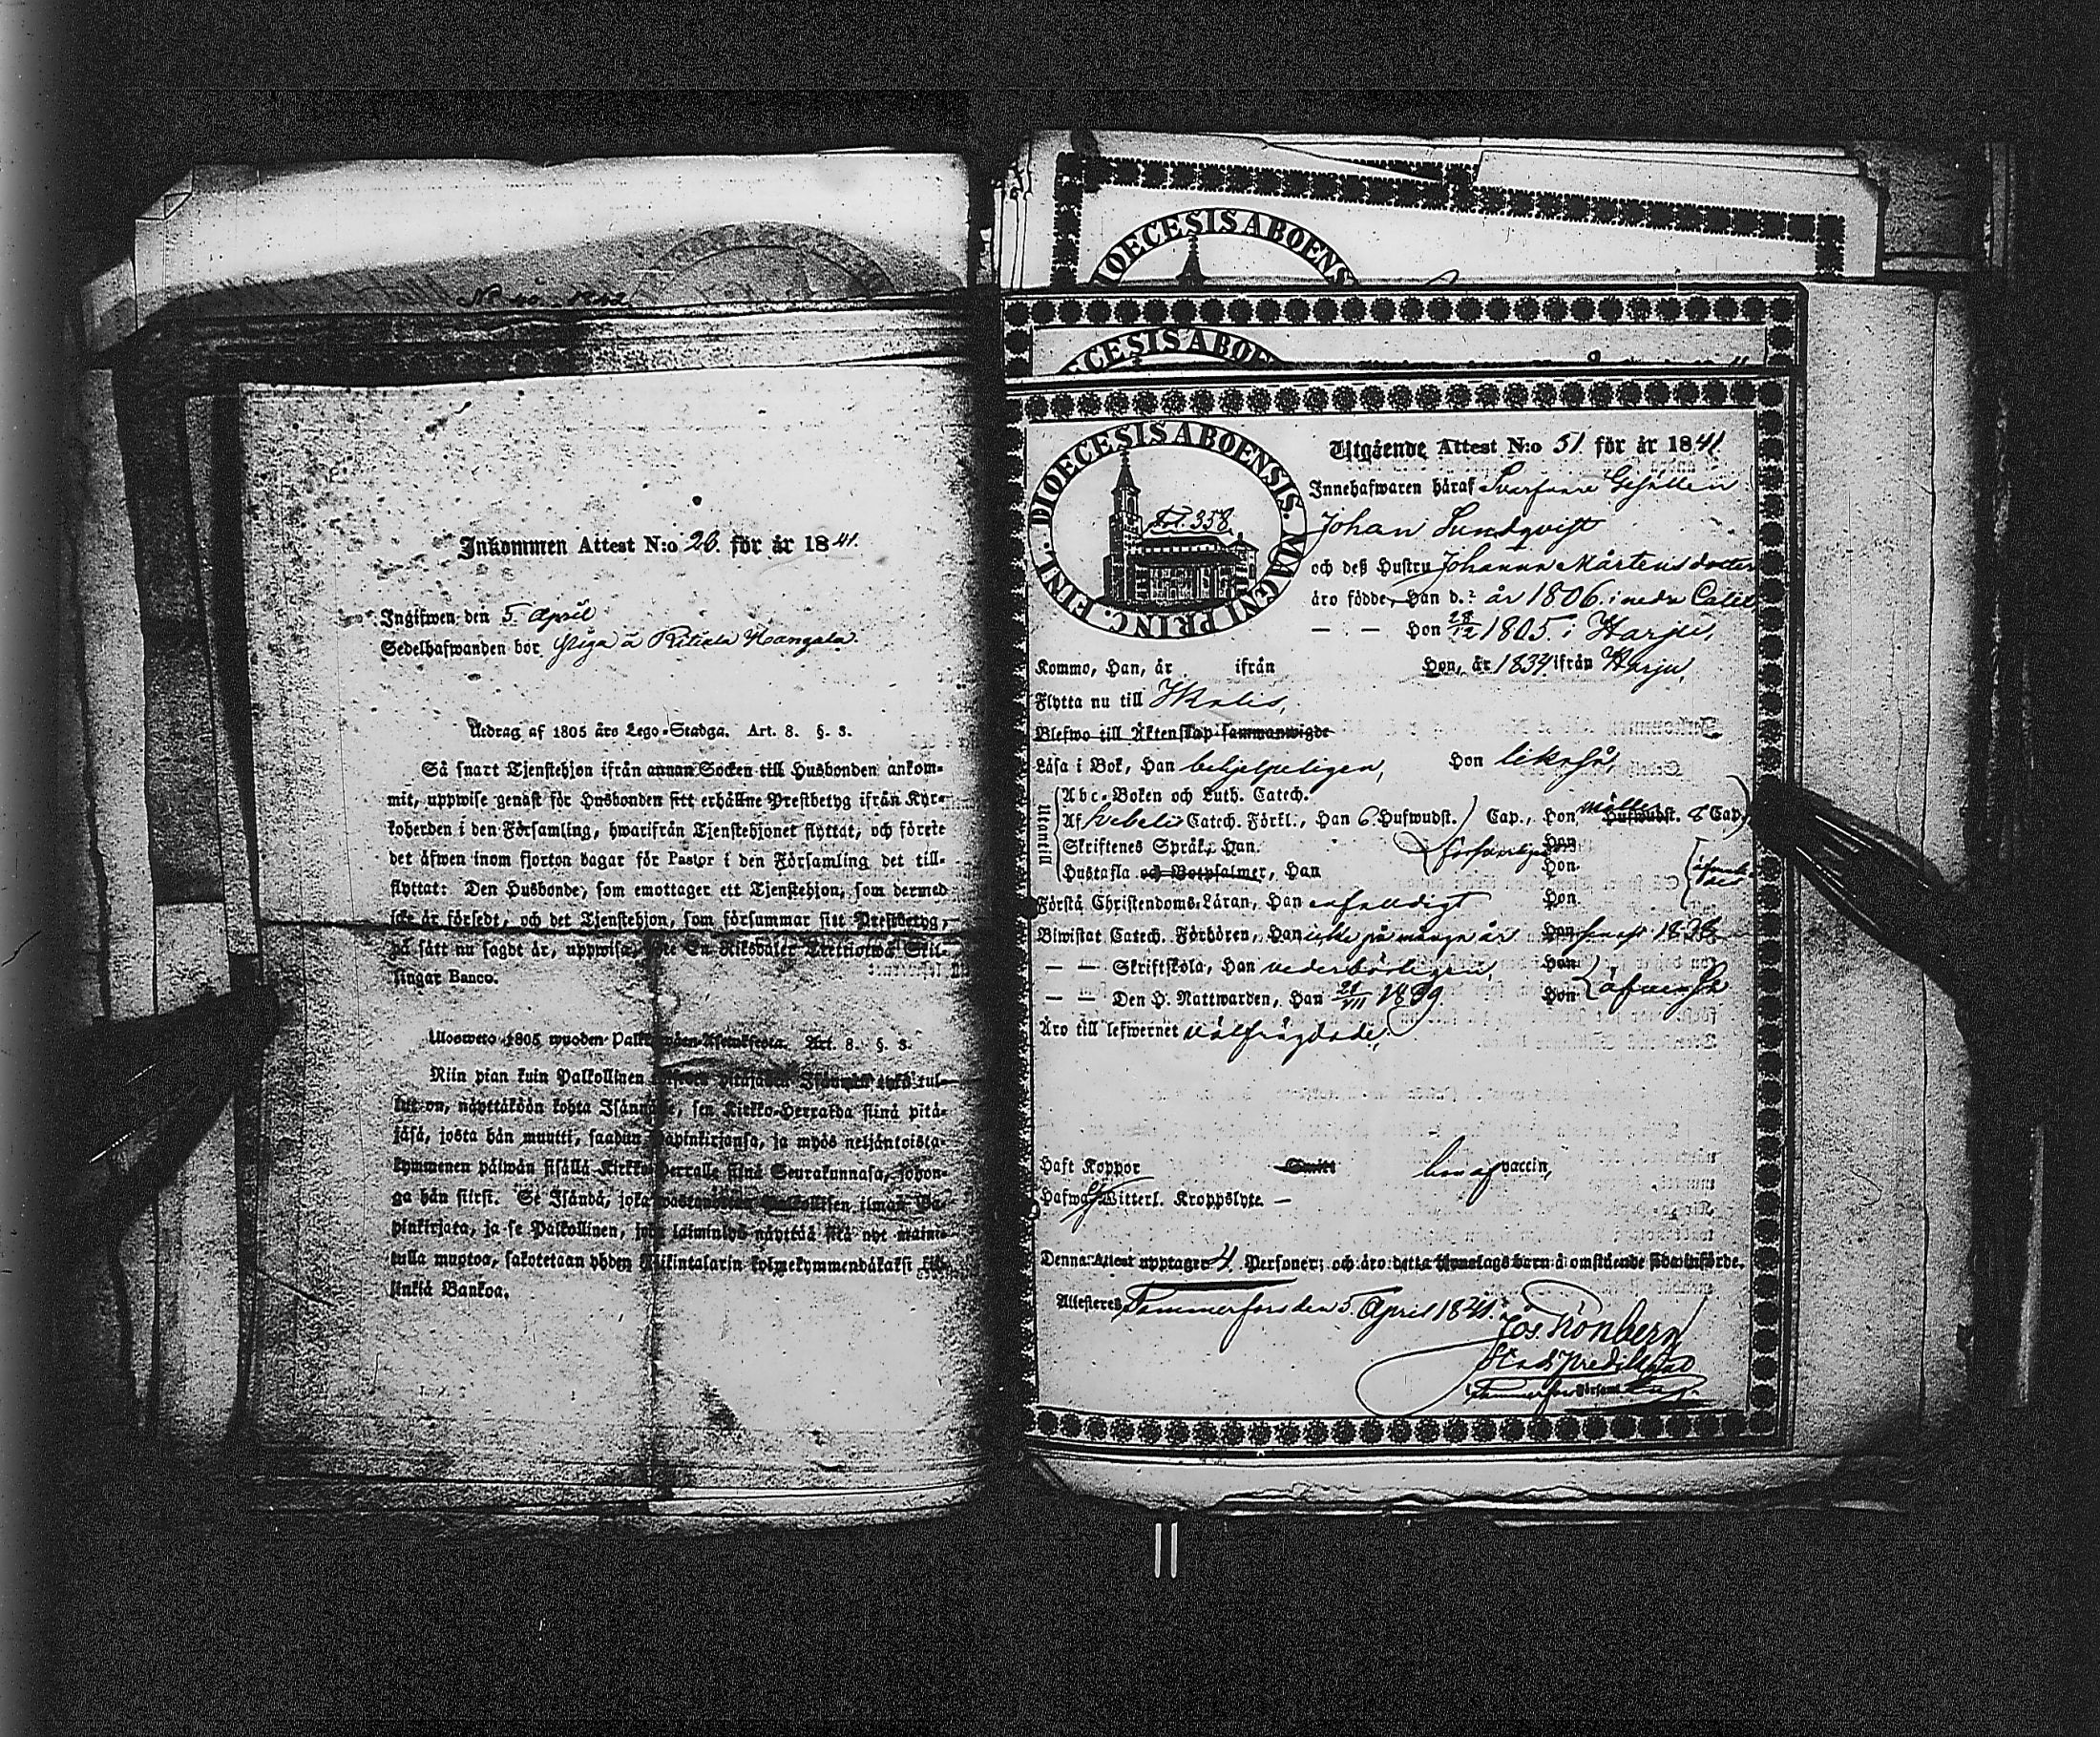 No 40 1842
Inkommen Attest N:o 26. för år 1841.
Ingifwen den 5 April
Sedelhafwanden bor
Utdrag af 1805 års Lego-Stadga. Art. 8. §. 3.
Så snart Tjenstehjon ifrån annan Socken till Husbonden ankom-
mit, uppwise genast för Husbonden sitt erhållne Prestbetyg ifrån Kyr-
koherden i den Församling, hwarifrån Tjenstehjonet flyttat, och förete
det äfwen inom fjorton dagar för Pastor i den Församling det till-
flyttat: Den Husbonde, som emottager ett Tjenstehjon, som dermed
icke är försedt, och det Tjenstehjon, som försummar sitt Prestbetyg,
på sätt nu sagdt är, uppwisa, En Riksdaler Trettiotwå Skil-
lingar Banco.
Ulosweto 1805 wuoden Art. 8. §. 3.
Niin pian kuin Palkollinen tul-
lut on, näyttäköön kohta Isännälle, sen Kirkko-Herralda siinä pitä-
jäsä, josta hän muutti, saadun Papinkirjansa, ja myös neljäntoista-
kymmenen päiwän sisällä Kirkko-Herralle siinä Seurakunnasa, johon-
ga hän siirsi. Se Isändä, joka Palkollisen ilman Pa-
pinkirjata, ja se Palkollinen, joka laiminlyö näyttää sitä nyt maini-
tulla muotoa, sakotetaan yhden Riikintalarin kolmekymmendäkaksi kil-
linkiä Bankoa.
DIOECESIS ABOENS
ECESIS ABOE
DIOECESIS ABOENSIS. MAGNI PRINC. FINL.
Fol. 358.
Utgående Attest N:o 51 för år 1841
Innehafwaren häraf Swarfware Gesällen
Johan Lundqvist
och deß Hustru Johanna Mårtensdotter
äro födde, Han d. år 1806. i
— — Hon 28/12 1805. i Harju,
Komme, Han, år ifrån Hon, år 1834 ifrån Harju,
Flytta nu till Ikalis,
Blefwo till Äktenskap sammanwigde
Läsa i Bok, Han behjelpeligen, Hon likaså,
Utantill
Abc-Boken och Luth. Catech.
Af Svebelii Catech. Förkl., Han 6 Hufwudst. Cap., Hon, Hufwudst. 8 Cap.
Skriftenes Språk, Han Hon
Hustafla och Botpsalmer, Han Hon
Förstå Christendoms-Läran, Han enfaldigt Hon
Biwistat Catech. Förhören, Han icke på många år Hon senast 1838
— — Skriftskola, Han vederbörligen, Hon
— — Den H. Nattwarden, Han 21/VII 1839. Hon äfvenså
Äro till lefwernet välfrägdade,
Haft Koppor Smitt vaccin,
Hafwa ej Witterl. Kroppslyte —
Denna Attest upptager 4 Personer; och äro detta Hionelags barn å omstående sida införde.
Attesteres Tammerfors den 5. April 1841.
Jos. Grönberg
Stads Predikant
i Tammerfors Församl.